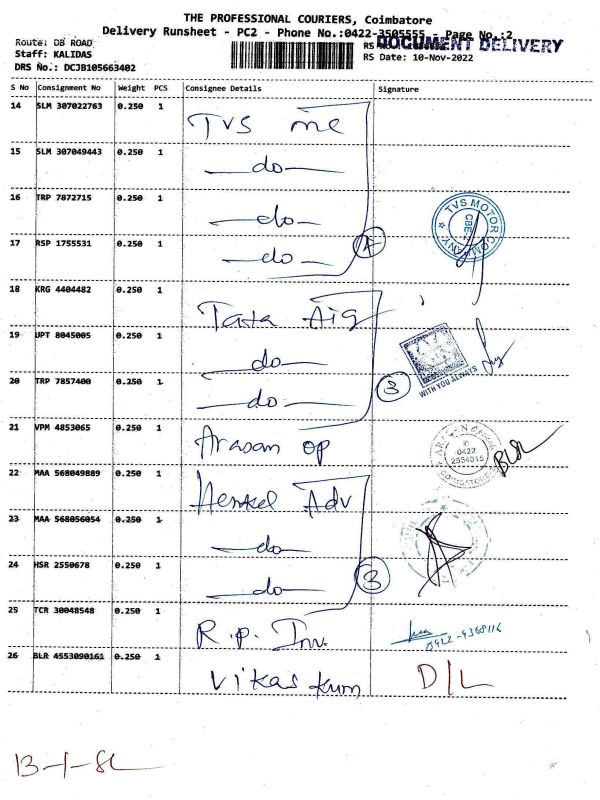 THE PROFESSIONAL COURIERS, Coimbatore
Delivery Runsheet - PC2 - Phone No.:0422-3505555 - Page No.:2
DOCUMENT DELIVERY
Route: DB ROAD
Staff: KALIDAS
RS Date: 10-Nov-2022
DRS No.: DCJB105663402
S No Consignment No Weight PCS Consignee Details Signature
14 SLM 307022763 0.250 1 TVS me
15 SLM 307049443 0.250 1 -do-
16 TRP 7872715 0.250 1 -do-
17 RSP 1755531 0.250 1 -do-
TVS MOTOR COMPANY
CBE-2
18 KRG 4404482 0.250 1 Tata Aig
19 UPT 8045005 0.250 1 -do-
20 TRP 7857400 0.250 1 -do-
3
WITH YOU ALWAYS
21 VPM 4853065 0.250 1 Arasan op
0422
22 MAA 568049889 0.250 1 Henkel Adv
23 MAA 568056054 0.250 1 -do-
24 HSR 2550678 0.250 1 -do-
3
25 TCR 30048548 0.250 1 R.p. Inv.
26 BLR 4553090161 0.250 1 Vikas kum D/L